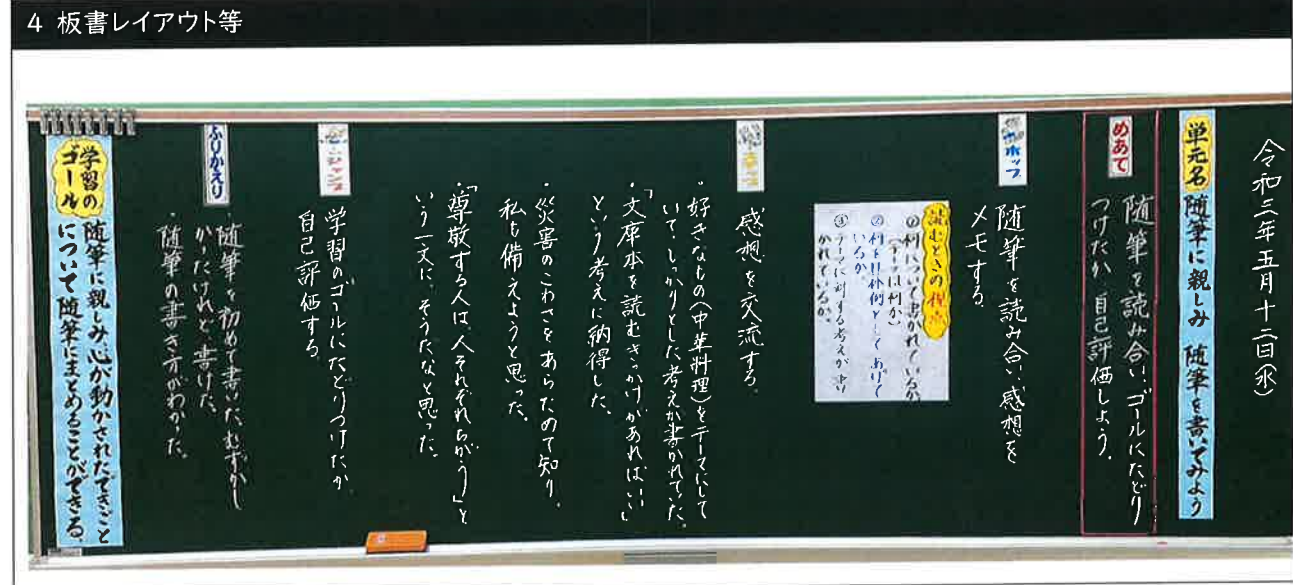 4 板書レイアウト等
令和三年五月十二日(水)
単元名
随筆に親しみ 随筆を書いてみよう
めあて
随筆を読み合い、ゴールにたどり
つけたか、自己評価しよう。
ホップ
随筆を読み合い、感想を
メモする。
読むときの視点
①何について書かれているか
(テーマは何か)
②何を具体例としてあげて
いるか。
③テーマに対する考えが書
かれているか。
感想を交流する。
・好きなもの(中華料理)をテーマにして
いて、しっかりとした考えが書かれていた。
・「文庫本を読むきっかけがあればいい」
という考えに納得した。
・災害のこわさをあらためて知り、
私も備えようと思った。
・「尊敬する人は、人それぞれちがう」と
いう一文に、そうだなと思った。
ジャンプ
学習のゴールにたどりつけたか、
自己評価する。
ふりかえり
・随筆を初めて書いた。むずかし
かったけれど書けた。
・随筆の書き方がわかった。
学習の
ゴール
随筆に親しみ、心が動かされたできごと
について随筆にまとめることができる。